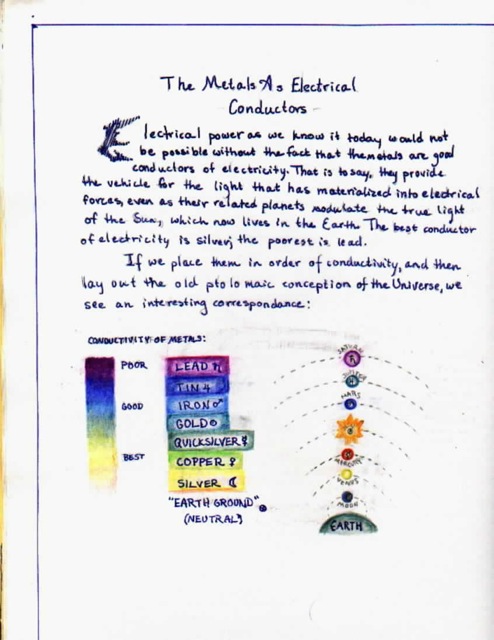 The Metals As Electrical
Conductors
Electrical power as we know it today would not
be possible without the fact that the metals are good
conductors of electricity. That is to say, they provide
the vehicle for the light that has materialized into electrical
forces, even as their related planets modulate the true light
of the Sun, which now lives in the Earth. The best conductor
of electricity is silver, the poorest is lead.
If we place them in order of conductivity, and then
lay out the old ptolomaic conception of the Universe, we
see an interesting correspondance:
CONDUCTIVITY OF METALS:
POOR
GOOD
BEST
LEAD ♄
TIN ♃
IRON ♂
GOLD ☉
QUICKSILVER ☿
COPPER ♀
SILVER ☾
"EARTH GROUND"
(NEUTRAL)
SATURN
JUPITER
MARS
MERCURY
VENUS
MOON
EARTH